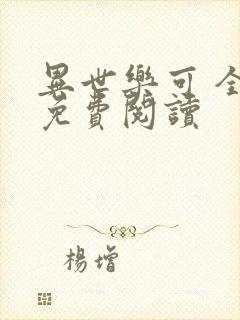 異世樂可全
免費閱讀
楊增